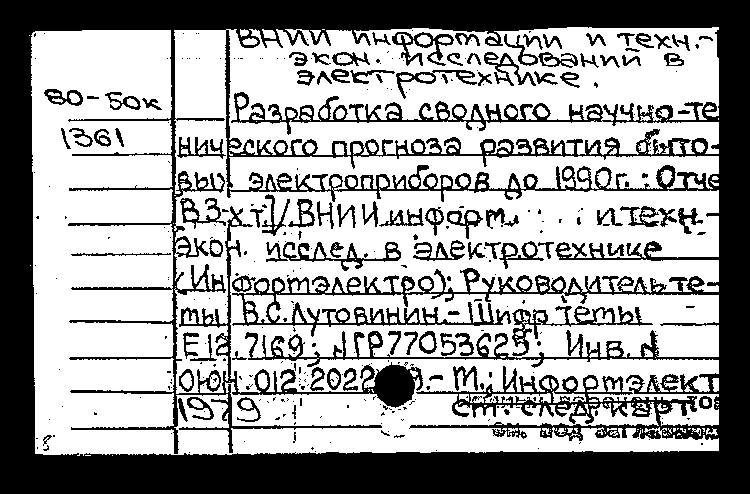 ВНИИ информации и техн.-
экон. исследований в
электротехнике.
80-50к
Разработка сводного научно-те
1361
нического прогноза развития быто-
вых электроприборов до 1990г.: Отче
В 3-х т.]/ВНИИ информ. и техн.-
экон. исслед. в электротехнике
(Информэлектро); Руководитель те-
мы В.С.Лутовинин.- Шифр темы
Е12.7169; №ГР77053625; Инв. №
ОЮН.012.2022 .- М.: Информэлект
1979
См. след. карт
см. под заглавием
8